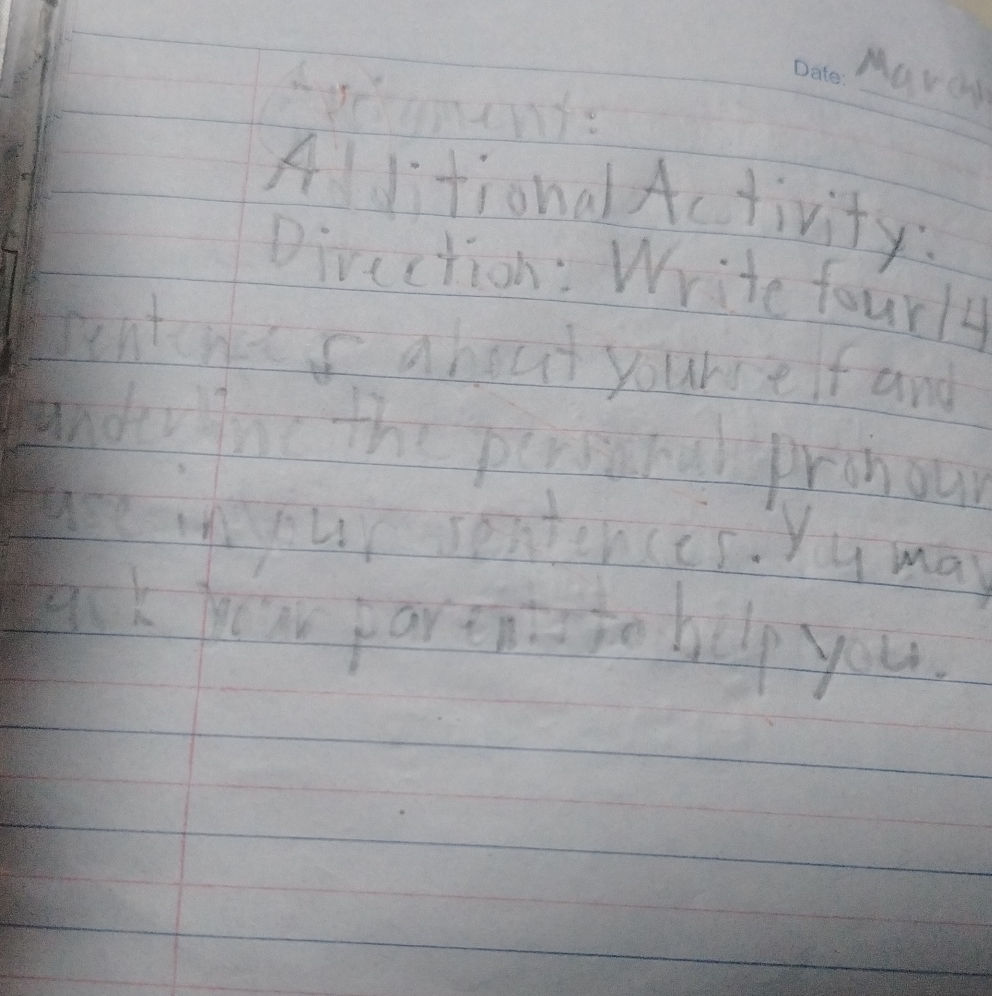 Date: March
Additional Activity:
Direction: Write four/4
sentences about yourself and
underline the personal pronoun
use in your sentences. You may
ask your parents to help you.